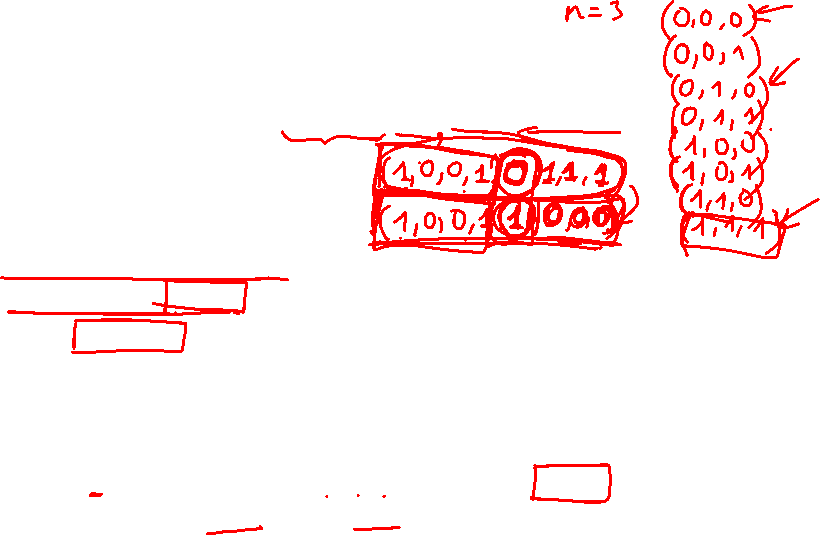 n=3
(0,0,0)
(0,0,1)
(0,1,0)
(0,1,1)
(1,0,0)
(1,0,1)
(1,1,0)
(1,1,1)
(1,0,0,1,0,1,1,1)
(1,0,0,1,1,0,0,0)